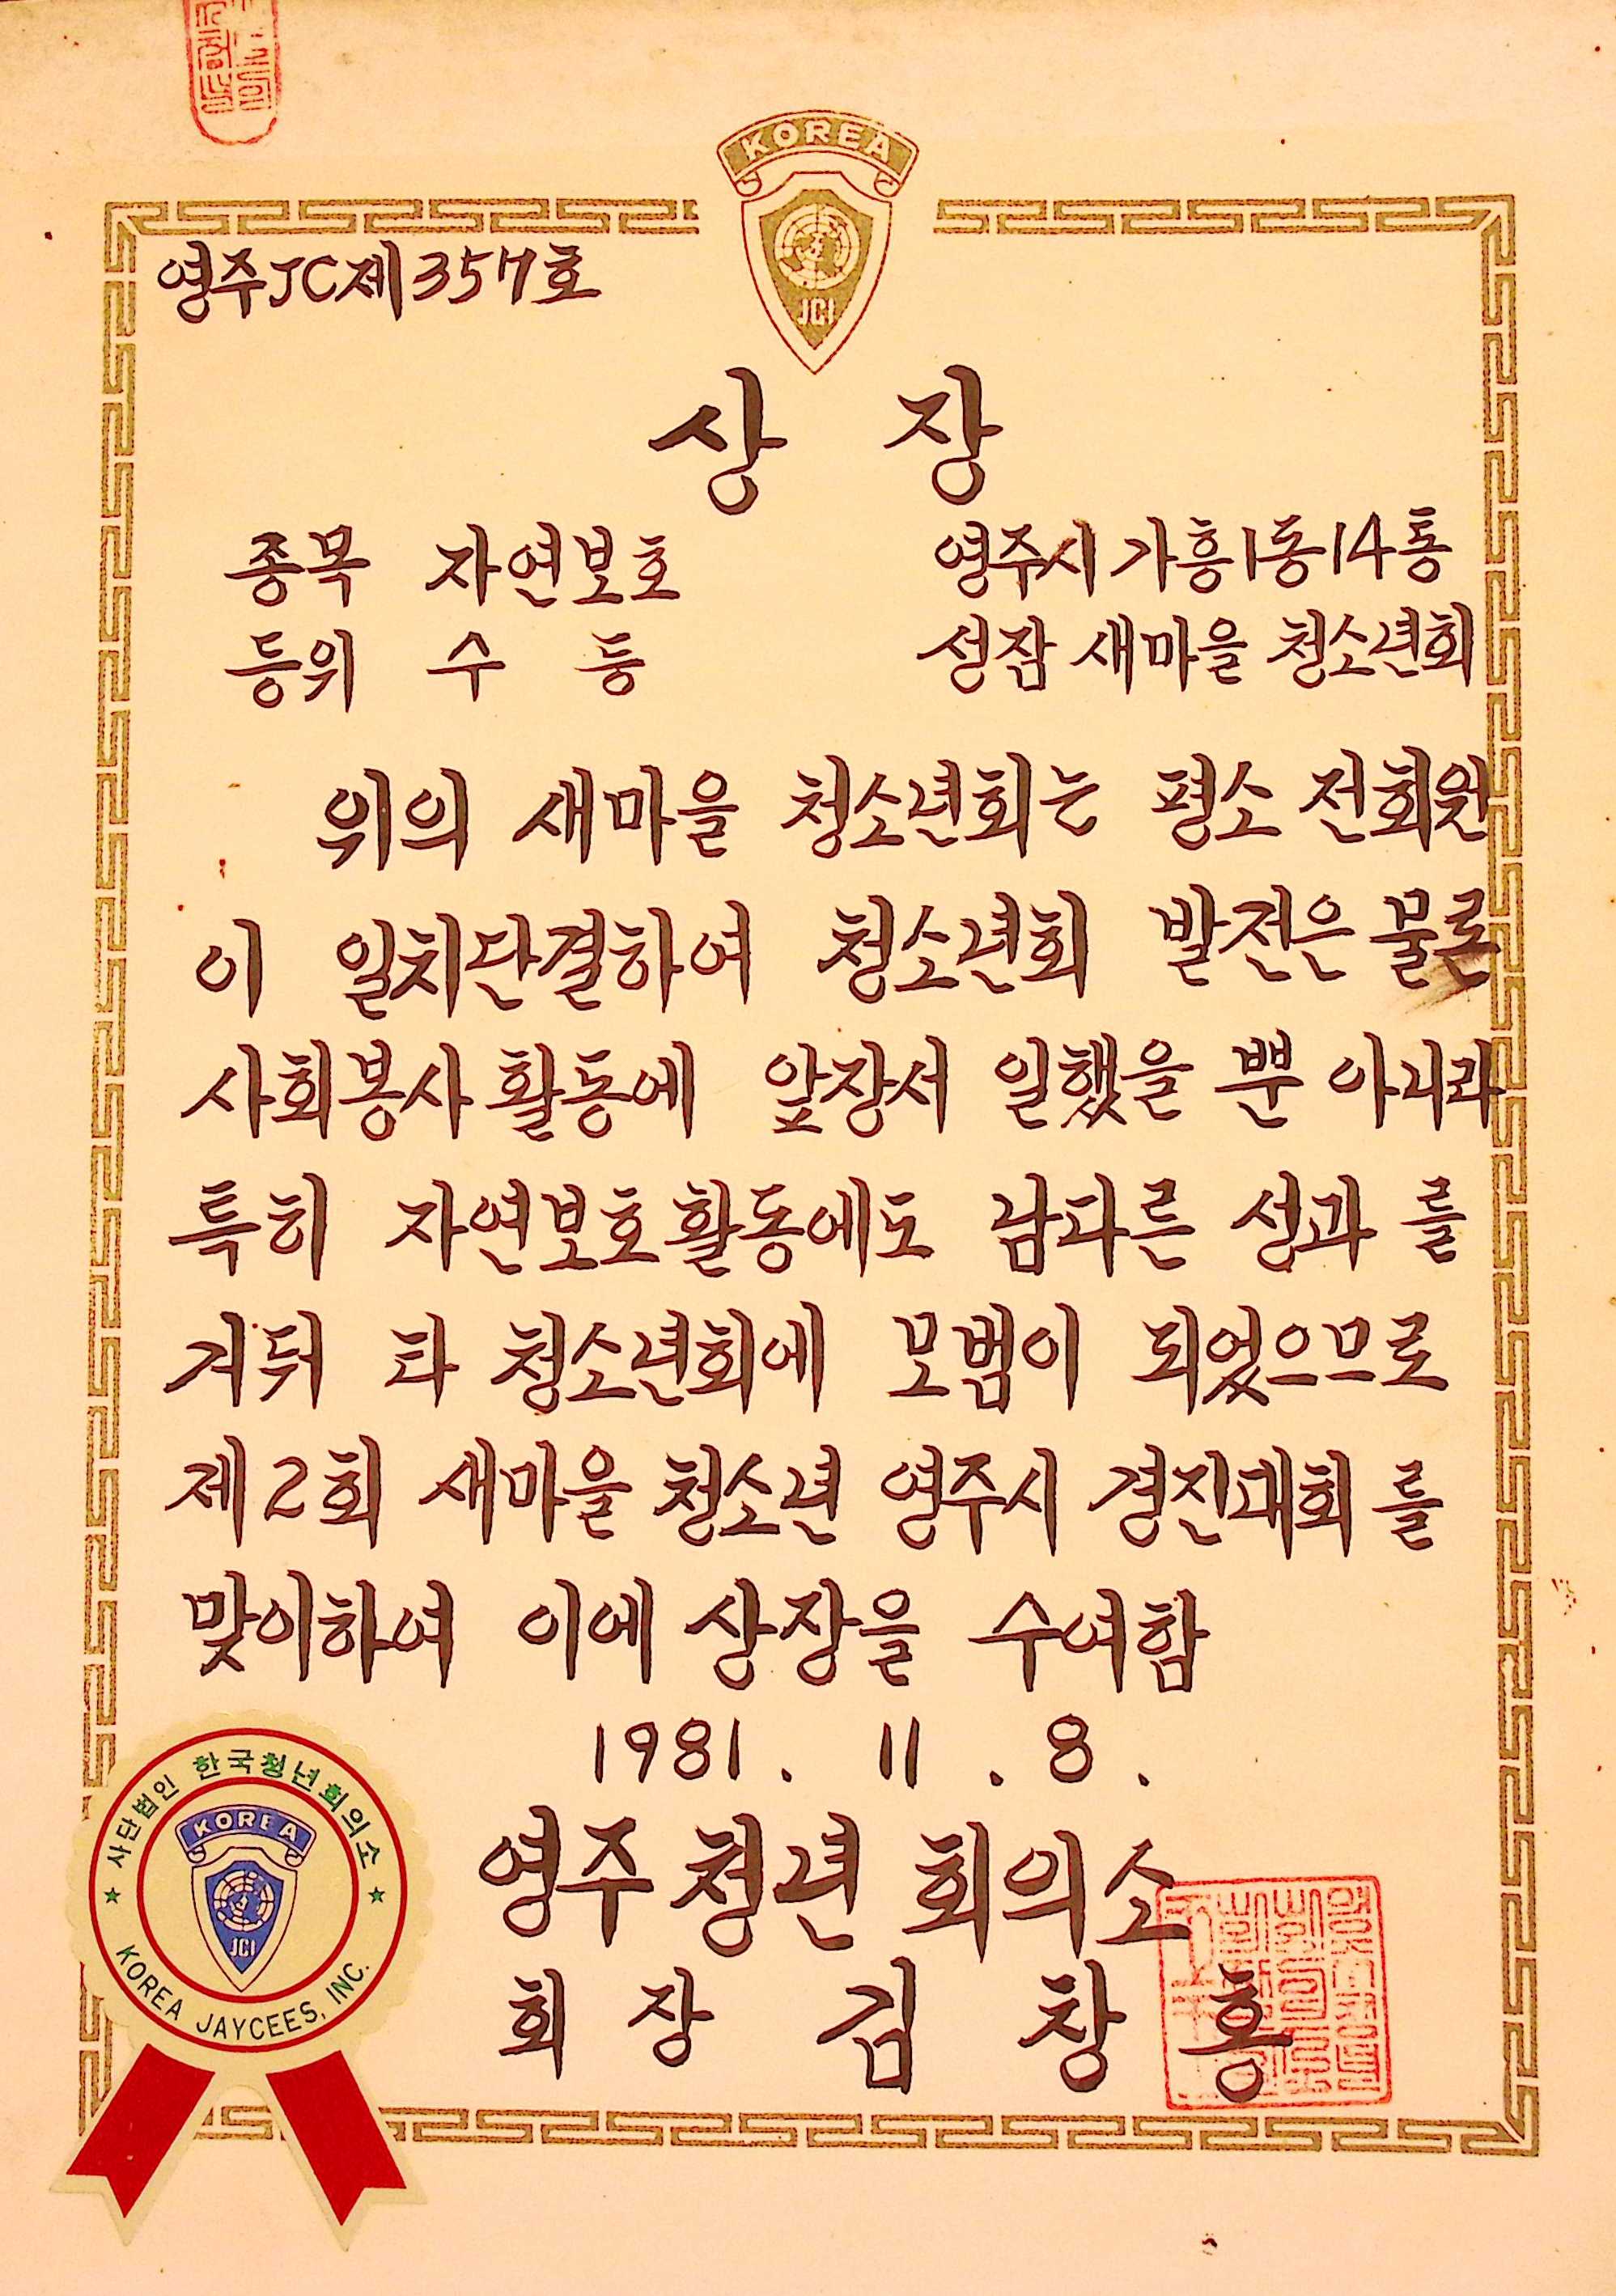 KOREA
JCI
영주JC제357호
상 장
종목 자연보호
등위 수 등
영주시 가흥1동14통
성잠 새마을 청소년회
위의 새마을 청소년회는 평소 전회원
이 일치단결하여 청소년회 발전은 물론
사회봉사 활동에 앞장서 일했을 뿐 아니라
특히 자연보호활동에도 남다른 성과 를
거둬 타 청소년회에 모범이 되었으므로
제2회 새마을 청소년 영주시 경진대회 를
맞이하여 이에 상장을 수여함
1981. 11 . 8 .
영주 청년 회의소
회 장 김 창 홍
사단법인 한국청년회의소
KOREA
JCI
KOREA JAYCEES, INC.